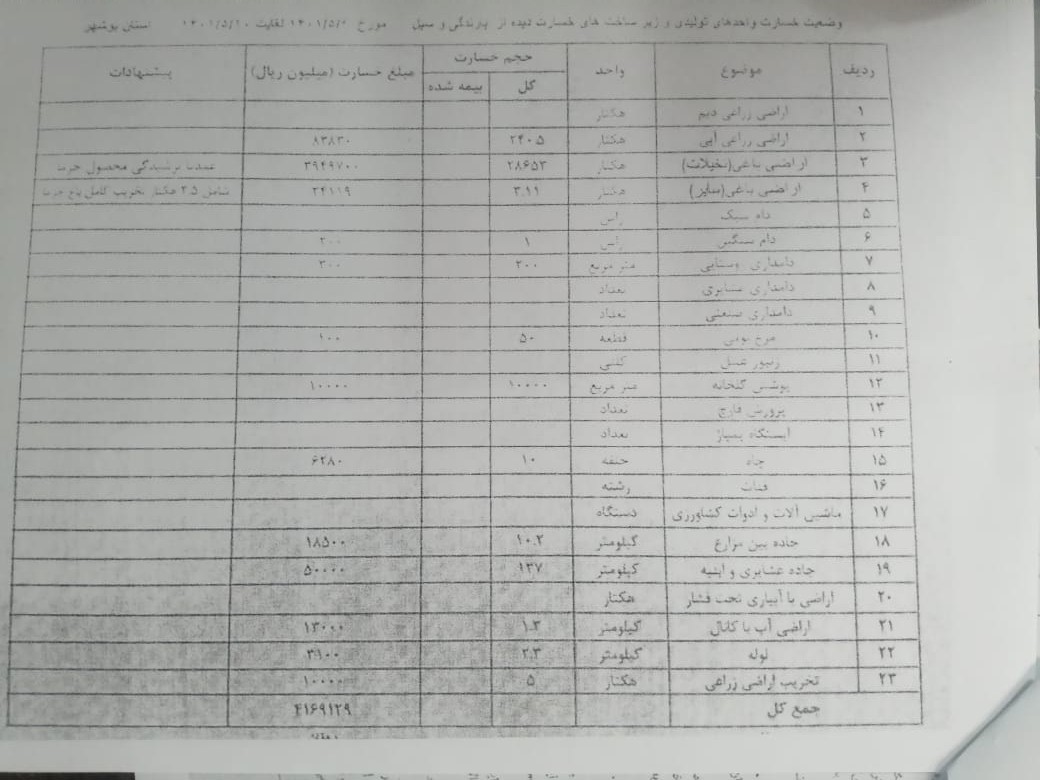 وضعیت خسارت واحدهای تولیدی و زیر ساخت های خسارت دیده از بارندگی و سیل مورخ ۱۴۰۱/۵/۶ لغایت ۱۴۰۱/۵/۲۰ استان بوشهر
ردیف موضوع واحد حجم خسارت مبلغ خسارت (میلیون ریال) پیشنهادات
کل بیمه شده
۱ اراضی زراعی دیم هکتار
۲ اراضی زراعی آبی هکتار ۲۴۰.۵ ۸۳۸۳۰
۳ اراضی باغی(نخیلات) هکتار ۲۸۶۵۳ ۳۹۴۹۷۰۰ عمدتا ترشیدگی محصول خرما
۴ اراضی باغی(سایر) هکتار ۳.۱۱ ۲۴۱۱۹ شامل ۲.۵ هکتار تخریب کامل باغ خرما
۵ دام سبک راس
۶ دام سنگین راس ۱ ۲۰۰
۷ دامداری روستایی متر مربع ۲۰۰ ۳۰۰
۸ دامداری عشایری تعداد
۹ دامداری صنعتی تعداد
۱۰ مرغ بومی قطعه ۵۰ ۱۰۰
۱۱ زنبور عسل کلنی
۱۲ پوشش گلخانه متر مربع ۱۰۰۰۰ ۱۰۰۰۰
۱۳ پرورش قارچ تعداد
۱۴ ایستگاه پمپاژ تعداد
۱۵ چاه حلقه ۱۰ ۶۲۸۰
۱۶ قنات رشته
۱۷ ماشین آلات و ادوات کشاورزی دستگاه
۱۸ جاده بین مزارع کیلومتر ۱۰.۲ ۱۸۵۰۰
۱۹ جاده عشایری و ابنیه کیلومتر ۱۳۷ ۵۰۰۰۰
۲۰ اراضی با آبیاری تحت فشار هکتار
۲۱ اراضی آب با کانال کیلومتر ۱.۳ ۱۳۰۰۰
۲۲ لوله کیلومتر ۲.۳ ۳۱۰۰
۲۳ تخریب اراضی زراعی هکتار ۵ ۱۰۰۰۰
جمع کل ۴۱۶۹۱۲۹